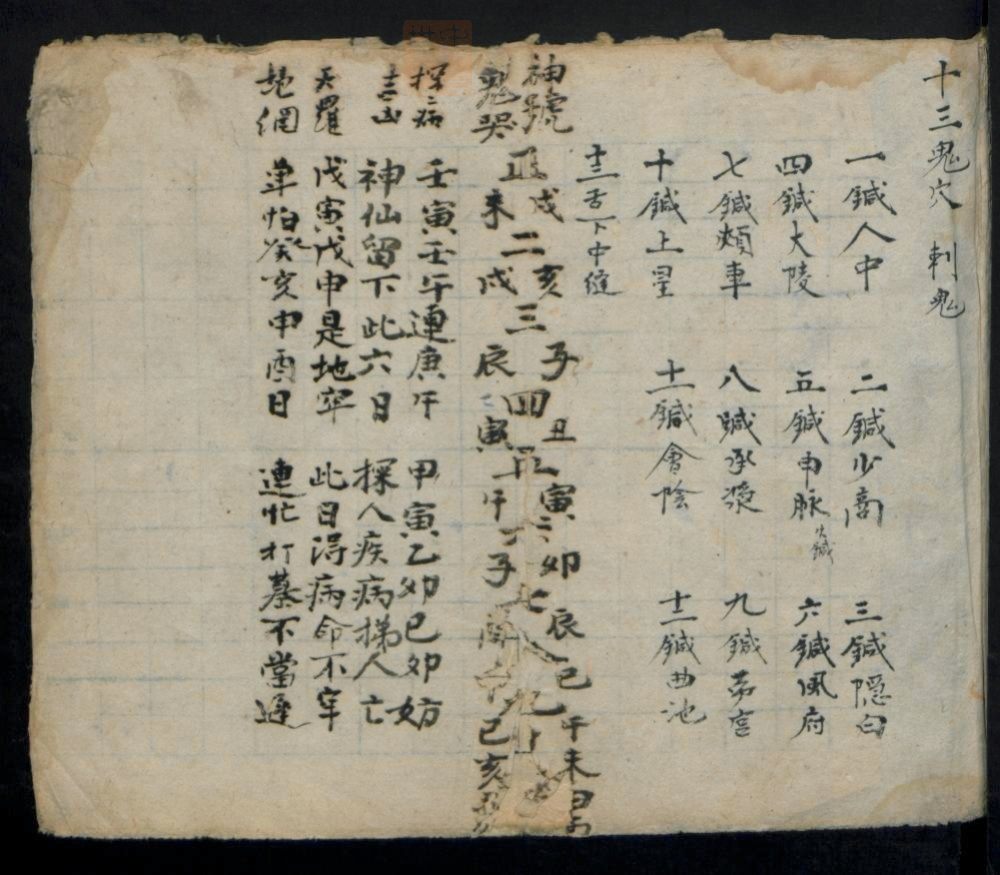 十三鬼穴 刺鬼
一鍼人中 二鍼少商 三鍼隠白
四鍼大陵 五鍼申脉 火鍼 六鍼風府
七鍼頰車 八鍼承漿 九鍼劳宫
十鍼上星 十一鍼會陰 十二鍼曲池
十三舌下中缝
神號 戌亥子丑寅卯辰巳午未
正二三四五六七八九十
鬼哭 未戌辰寅午子 巳亥
探病 壬寅壬午連庚午 甲寅乙卯已卯妨
吉凶 神仙留下此六日 探人疾病捸人亡
天羅 戊寅戊申是地牢 此日得病命不牢
地網 单怕癸亥申酉日 連忙打墓不當遲